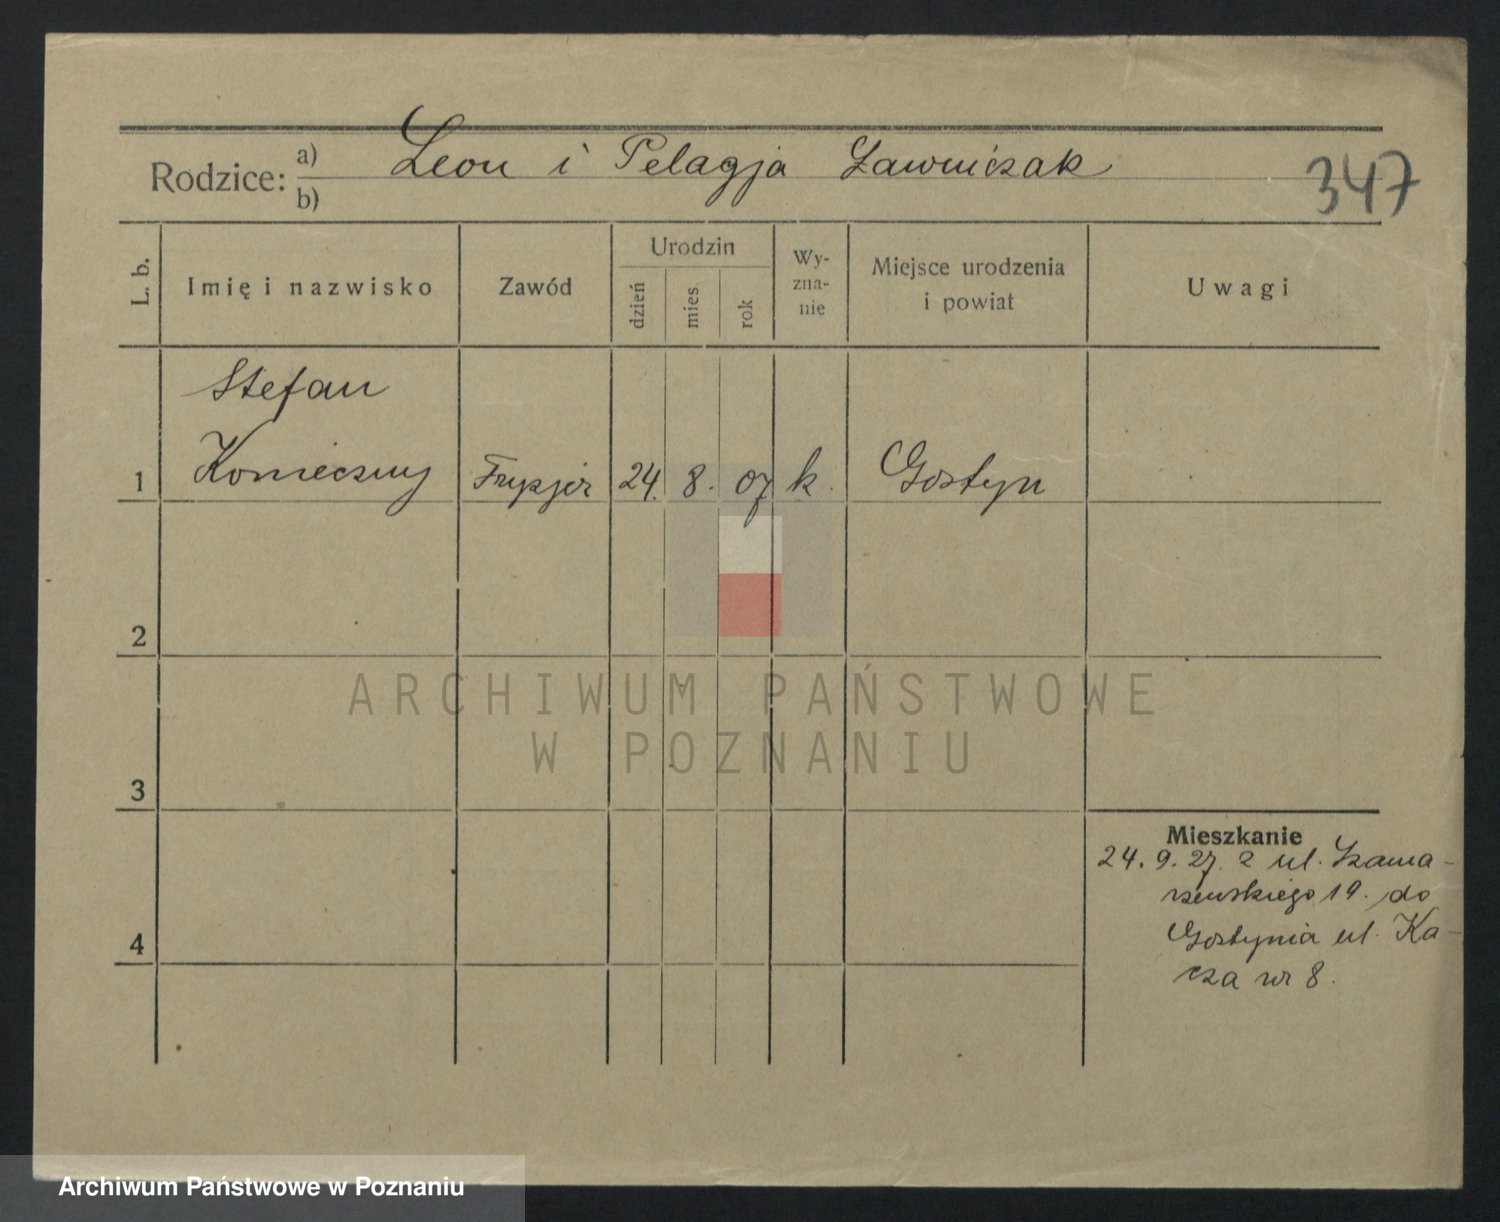 Rodzice: a) Leon i Pelagja Ławniczak
b)
347
L. b.
Imię i nazwisko
Zawód
Urodzin
dzień
mies.
rok
Wy-
zna-
nie
Miejsce urodzenia
i powiat
Uwagi
Stefan
1 Konieczny Fryzjer 24. 8. 07 k. Gostyn
2
ARCHIWUM PAŃSTWOWE
W POZNANIU
3
Mieszkanie
24. 9. 27. z ul. Szama-
rzewskiego 19. do
4 Gostynia ul. Ka-
cza nr 8.
Archiwum Państwowe w Poznaniu